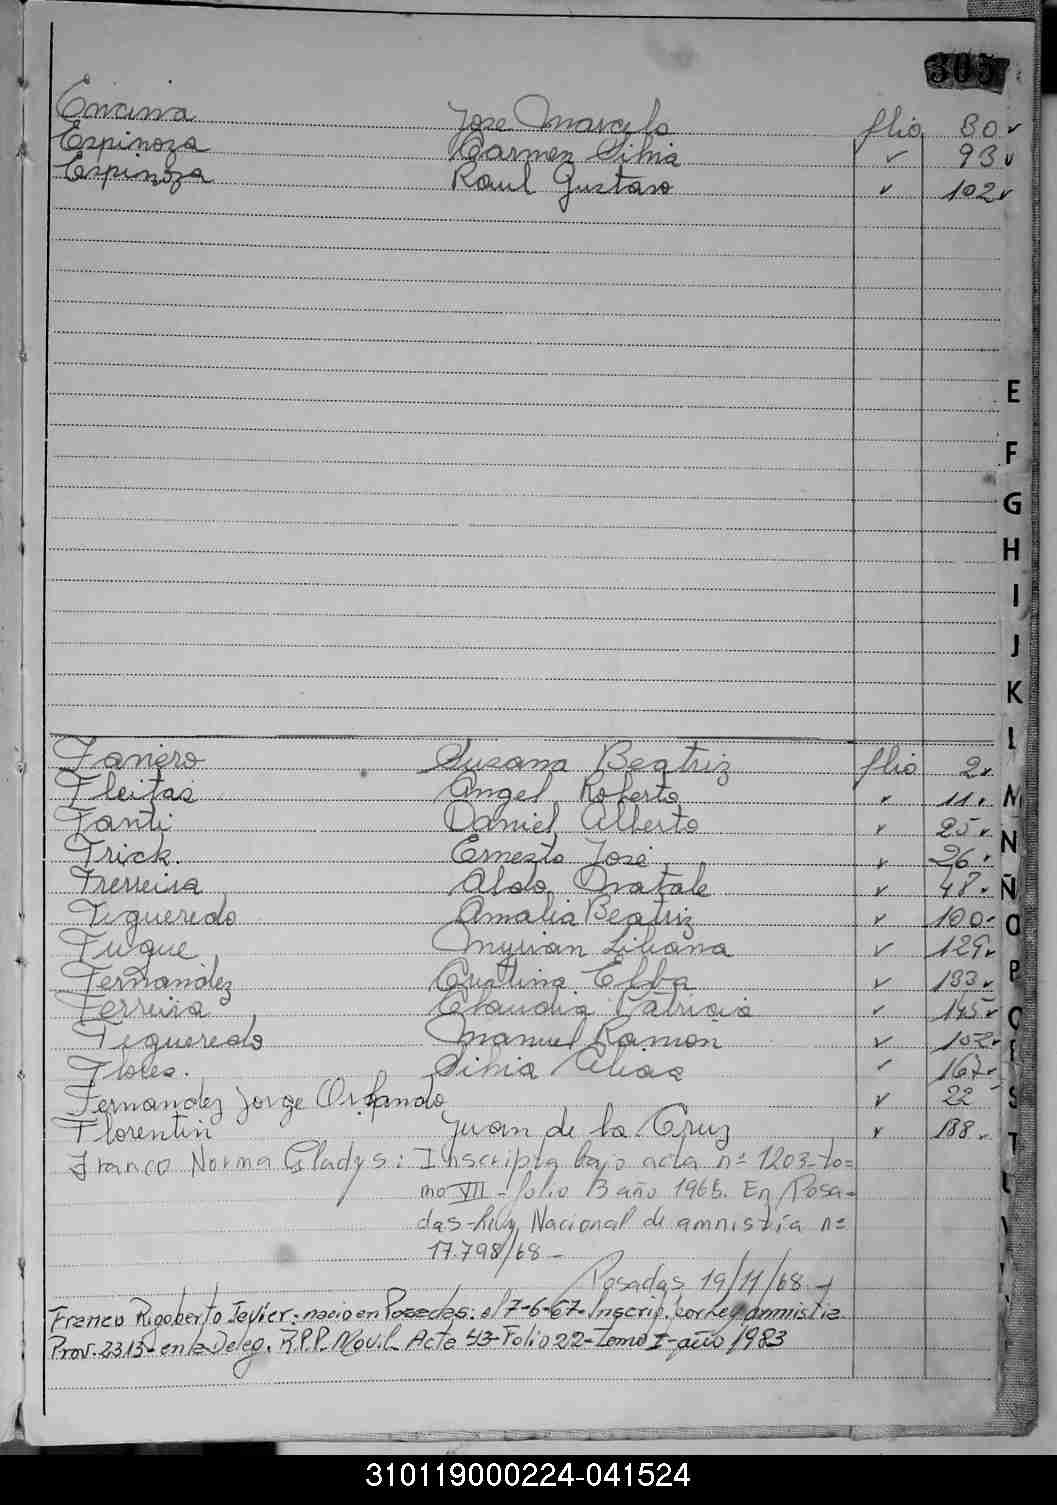 305
Encina Jose Marcelo flio 80
Espinoza Carmen Silvia 93
Espinoza Raul Gustavo 102
E
F
G
H
I
J
K
L
Faniero Susana Beatriz flio 2
Fleitas Angel Roberto 11
M
Fanti Daniel Alberto 25
N
Frick. Ernesto José 26
Ferreira Aldo Natale 48
Ñ
Figueredo Amalia Beatriz 100
O
Fuque Myrian Liliana 129
Fernandez Cristina Elba 133
P
Ferreira Claudia Patricia 145
Figueredo Manuel Ramon 152
Flores. Silvia Alicia 167
Fernandez Jorge Orlando 22
S
Florentin Juan de la Cruz 188
T
Franco Norma Gladys: Inscripta bajo acta nº 1203-to=
mo VII - folio 13 año 1968. En Posa-
das-Ley Nacional de amnistía nº
17.798/68 -
Posadas 19/11/68
Franco Rigoberto Javier: nacio en Posadas: el 7-6-67-Inscrip. por Ley amnistia
Prov. 2313- en la Deleg. R.P.P. Movil Acta 43-Folio 22-Tomo I-año 1983
310119000224-041524